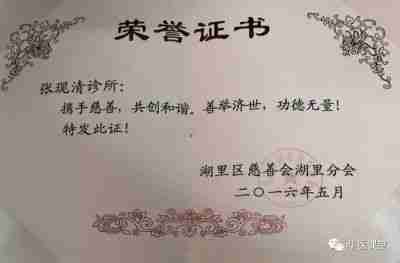 荣誉证书
张现清诊所：
携手慈善，共创和谐。善举济世，功德无量！
特发此证！
湖里区慈善会湖里分会
二〇一六年五月